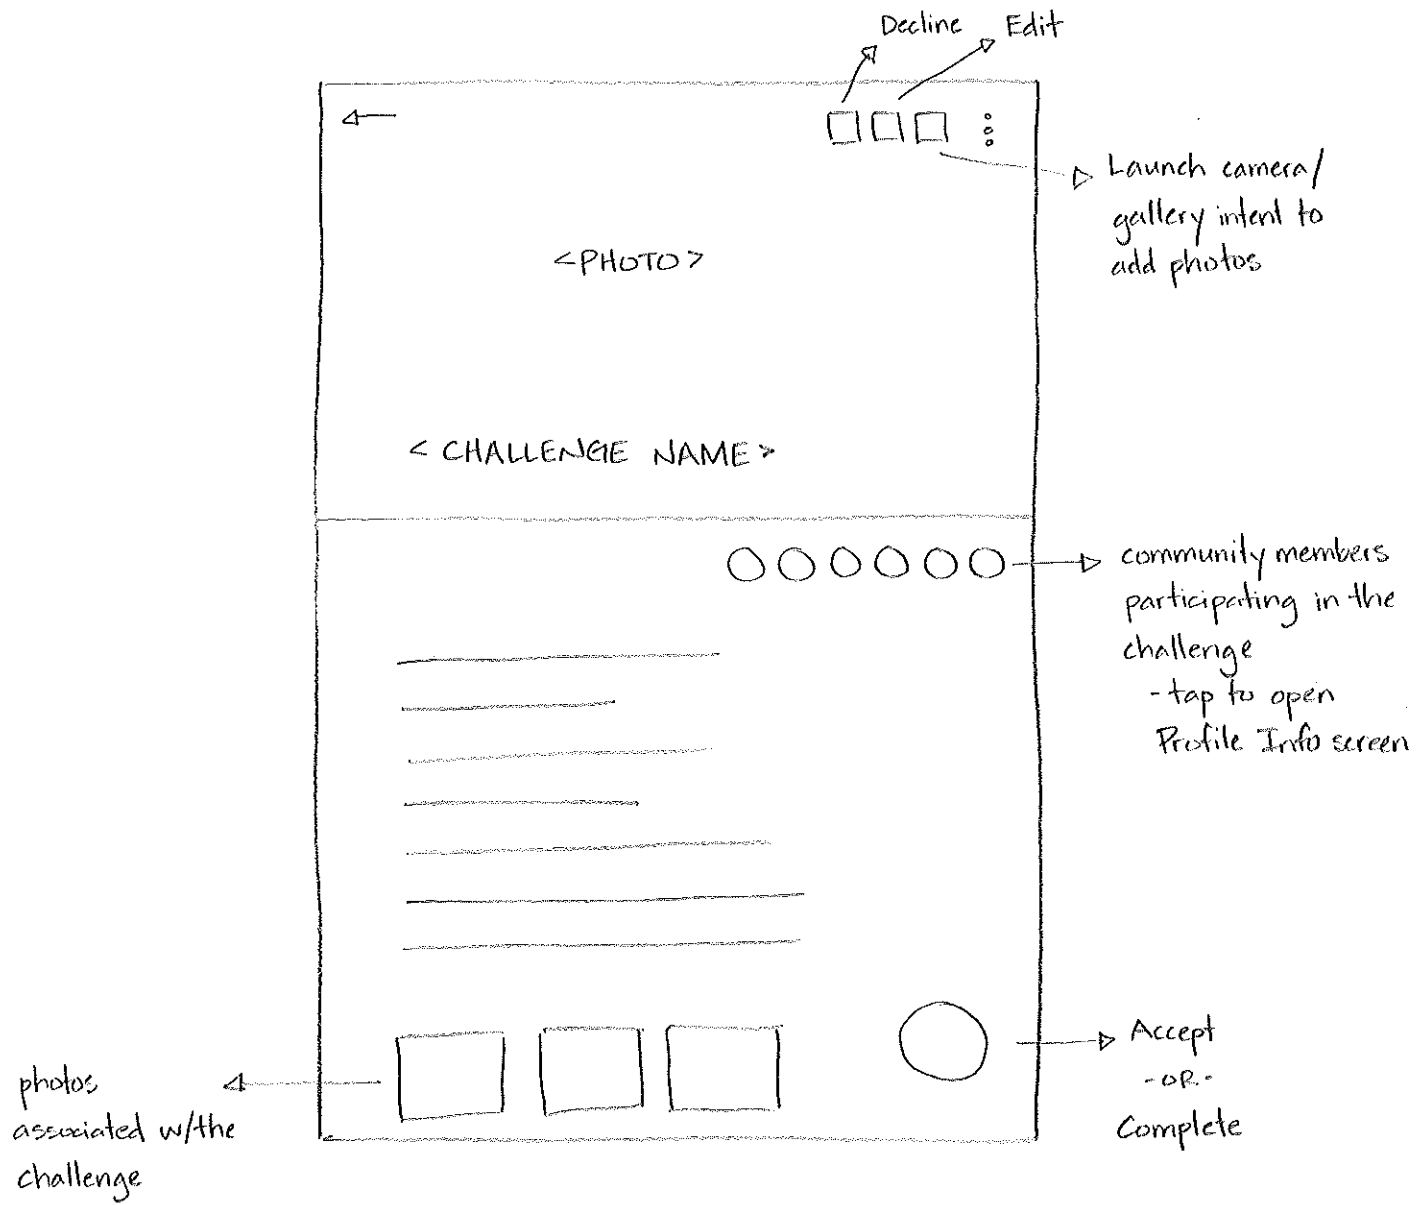 Decline
Edit
Launch camera/
gallery intent to
add photos
<PHOTO>
< CHALLENGE NAME >
community members
participating in the
challenge
- tap to open
Profile Info screen
Accept
- OR -
Complete
photos
associated w/the
challenge